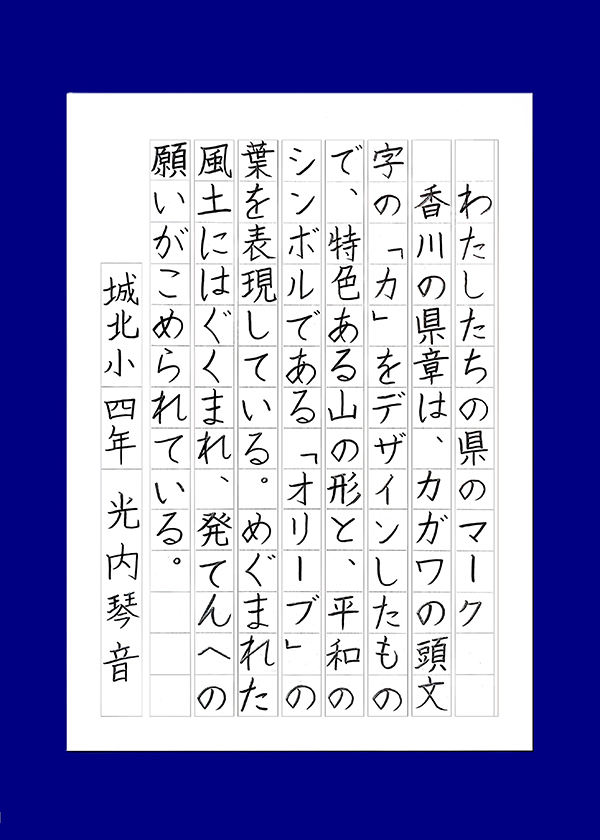 わたしたちの県のマーク
香川の県章は、カガワの頭文
字の「カ」をデザインしたもの
で、特色ある山の形と、平和の
シンボルである「オリーブ」の
葉を表現している。めぐまれた
風土にはぐくまれ、発てんへの
願いがこめられている。
城北小 四年 光内琴音